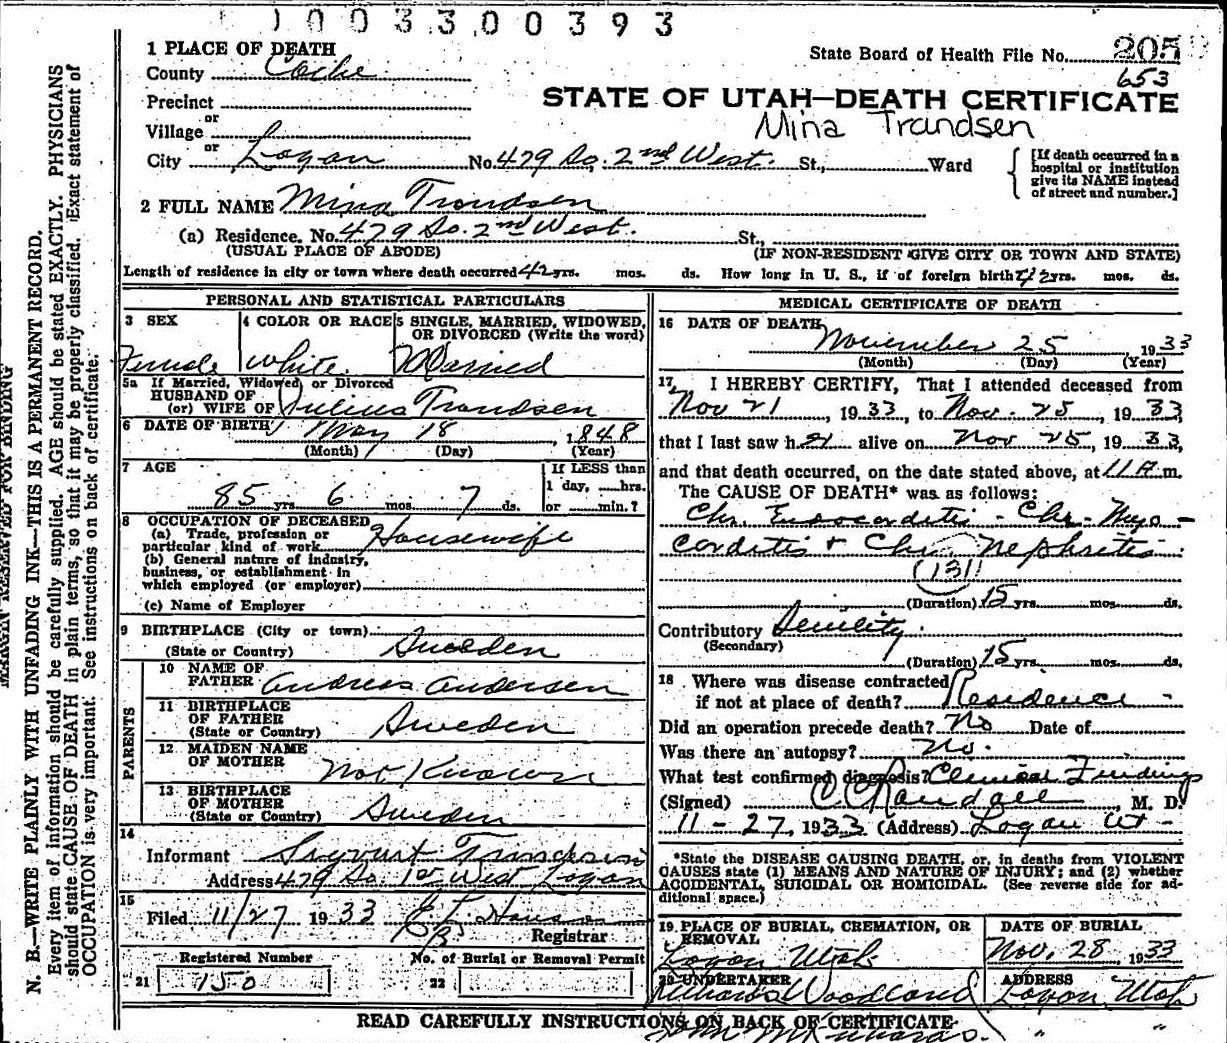 1 0 0 3 3 0 0 3 9 3
1 PLACE OF DEATH
State Board of Health File No. 205
County Cache
653
Precinct
STATE OF UTAH—DEATH CERTIFICATE
or
Village
Mina Trandsen
or
City Logan No. 479 So. 2nd West. St., Ward
[If death occurred in a hospital or institution give its NAME instead of street and number.]
2 FULL NAME Mina Trandsen
(a) Residence, No. 479 So. 2nd West. St.,
(USUAL PLACE OF ABODE) (IF NON-RESIDENT GIVE CITY OR TOWN AND STATE)
Length of residence in city or town where death occurred 42 yrs. mos. ds. How long in U. S., if of foreign birth? 42 yrs. mos. ds.
PERSONAL AND STATISTICAL PARTICULARS
3 SEX
4 COLOR OR RACE
5 SINGLE, MARRIED, WIDOWED, OR DIVORCED (Write the word)
Female White. Married
5a If Married, Widowed, or Divorced
HUSBAND OF
(or) WIFE OF Julius Trandsen
6 DATE OF BIRTH May 18, 1848
(Month) (Day) (Year)
7 AGE
85 yrs. 6 mos. 7 ds.
If LESS than
1 day, hrs.
or min.?
8 OCCUPATION OF DECEASED
(a) Trade, profession or
particular kind of work Housewife
(b) General nature of industry,
business, or establishment in
which employed (or employer)
(c) Name of Employer
9 BIRTHPLACE (City or town)
(State or Country) Sweden
PARENTS
10 NAME OF
FATHER Andreas Andersen
11 BIRTHPLACE
OF FATHER
(State or Country) Sweden
12 MAIDEN NAME
OF MOTHER Not Known
13 BIRTHPLACE
OF MOTHER
(State or Country) Sweden
14
Informant Trandsen
Address 479 So. 1st West Logan
15
Filed 11/27 1933
Registrar
Registered Number No. of Burial or Removal Permit
21 150 22
MEDICAL CERTIFICATE OF DEATH
16 DATE OF DEATH
November 25 1933
(Month) (Day) (Year)
17 I HEREBY CERTIFY, That I attended deceased from
Nov 21, 1933, to Nov. 25, 1933,
that I last saw her alive on Nov 25, 1933,
and that death occurred, on the date stated above, at 11 A m.
The CAUSE OF DEATH* was as follows:
Chr. Endocarditis - Chr- Myo-
carditis + Chr. Nephritis.
(131)
(Duration) 15 yrs. mos. ds.
Contributory Senility.
(Secondary)
(Duration) 15 yrs. mos. ds.
18 Where was disease contracted
if not at place of death? Residence -
Did an operation precede death? No Date of
Was there an autopsy? No.
What test confirmed diagnosis? Clinical Findings
(Signed) Randall, M. D.
11-27, 1933 (Address) Logan Ut-
*State the DISEASE CAUSING DEATH, or, in deaths from VIOLENT
CAUSES state (1) MEANS AND NATURE OF INJURY; and (2) whether
ACCIDENTAL, SUICIDAL OR HOMICIDAL. (See reverse side for ad-
ditional space.)
19. PLACE OF BURIAL, CREMATION, OR
REMOVAL
Logan Utah
DATE OF BURIAL
Nov. 28, 1933
20 UNDERTAKER
Woodland
ADDRESS
Logan, Utah
READ CAREFULLY INSTRUCTIONS ON BACK OF CERTIFICATE
" "
MARGIN RESERVED FOR BINDING
N. B.—WRITE PLAINLY WITH UNFADING INK—THIS IS A PERMANENT RECORD.
Every item of information should be carefully supplied. AGE should be stated EXACTLY. PHYSICIANS
should state CAUSE OF DEATH in plain terms, so that it may be properly classified. Exact statement of
OCCUPATION is very important. See instructions on back of certificate.